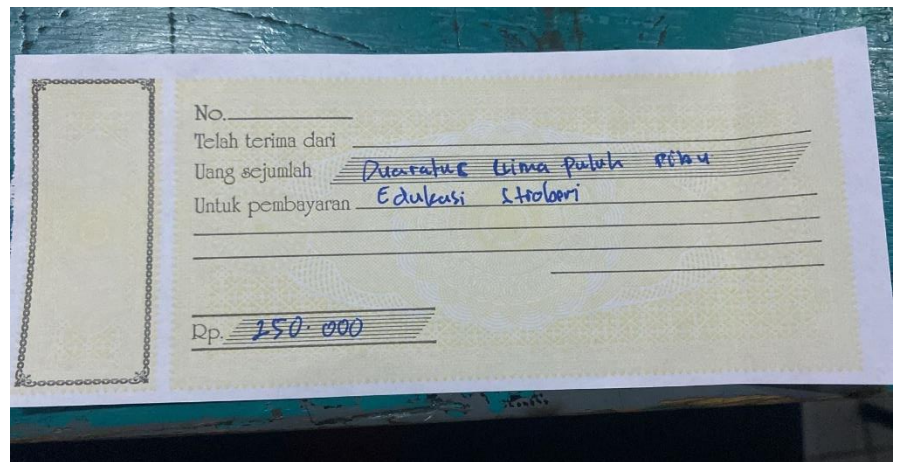 No.
Telah terima dari
Uang sejumlah Duaratus Lima Puluh Ribu
Untuk pembayaran Edukasi Stroberi
Rp. 250.000